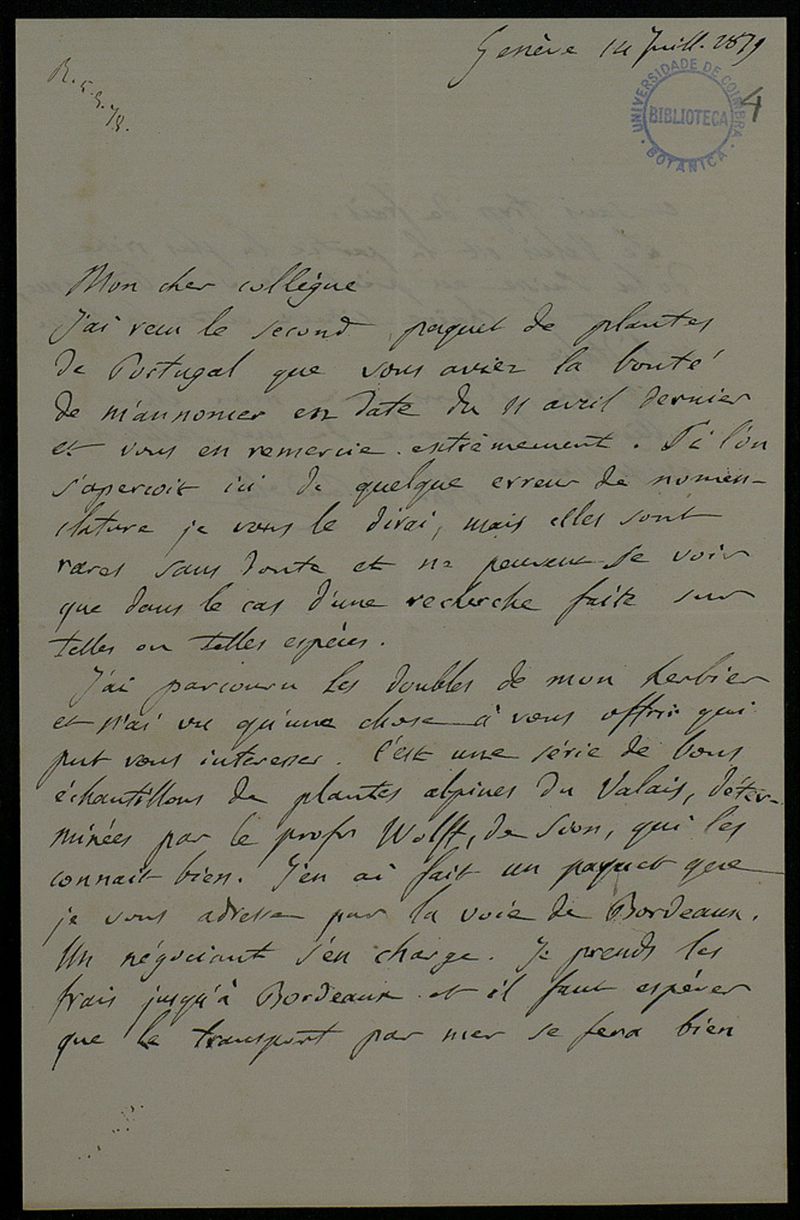 Genève 14 Juill. 1879
R. 5.8.79.
UNIVERSIDADE DE COIMBRA
BIBLIOTECA
BOTANICA
4
Mon cher collègue
J'ai reçu le second paquet de plantes
de Portugal que vous aviez la bonté
de m'annoncer en date du 11 avril dernier
et vous en remercie extrêmement. Si l'on
s'aperçoit ici de quelque erreur de nomen-
clature je vous le dirai, mais elles sont
rares sans doute et ne peuvent se voir
que dans le cas d'une recherche faite sur
telles ou telles espèces.
J'ai parcouru les doubles de mon herbier
et n'ai vu qu'une chose à vous offrir qui
put vous interesser. C'est une série de bons
échantillons de plantes alpines du Valais, déter-
minées par le profr Wolff, de Sion, qui les
connait bien. J'en ai fait un paquet que
je vous adresse par la voie de Bordeaux.
Un négociant s'en charge. Je prends les
frais jusqu'à Bordeaux et il faut espérer
que le transport par mer se fera bien